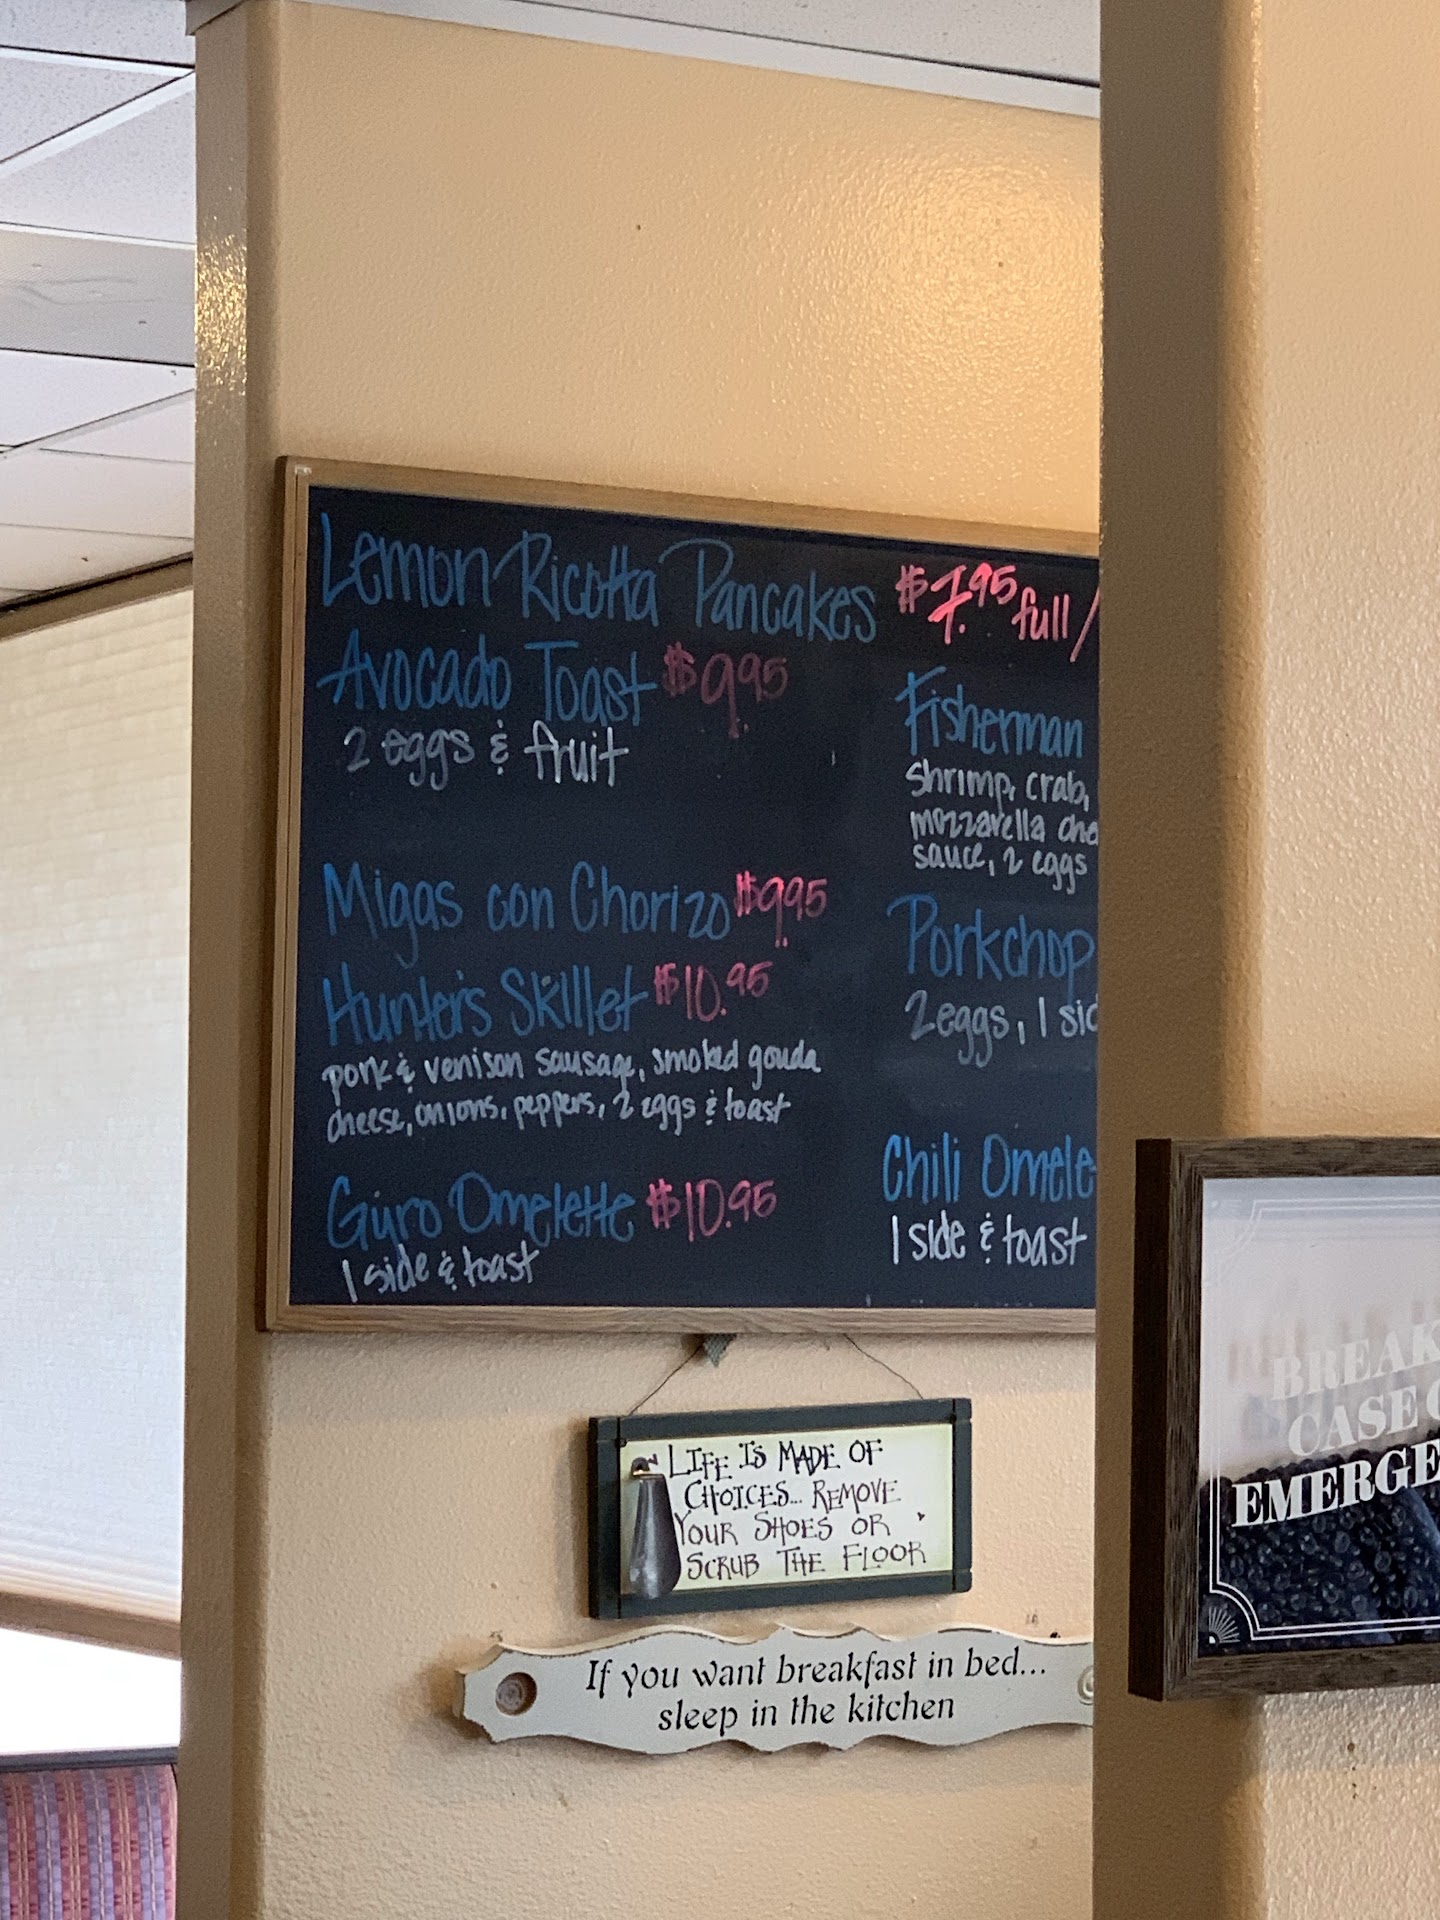 Lemon Ricotta Pancakes $7.95 full /
Avocado Toast $9.95
2 eggs & fruit
Migas con Chorizo $9.95
Hunter's Skillet $10.95
pork & venison sausage, smoked gouda
cheese, onions, peppers, 2 eggs & toast
Gyro Omelette $10.95
1 side & toast
Fisherman
shrimp, crab,
mozzarella che
sauce, 2 eggs
Porkchop
2 eggs, 1 sid
Chili Omele
1 side & toast
LIFE IS MADE OF
CHOICES... REMOVE
YOUR SHOES OR
SCRUB THE FLOOR
If you want breakfast in bed...
sleep in the kitchen
BREAK
CASE O
EMERGE